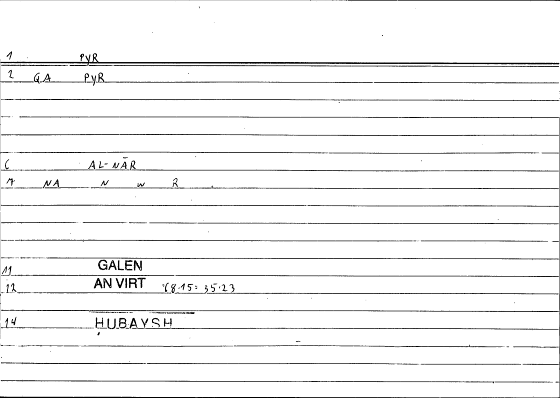 1 PYR
2 GA PYR
6 AL-NĀR
7 NA N W R
11 GALEN
12 AN VIRT 68.15: 35.23
14 HUBAYSH